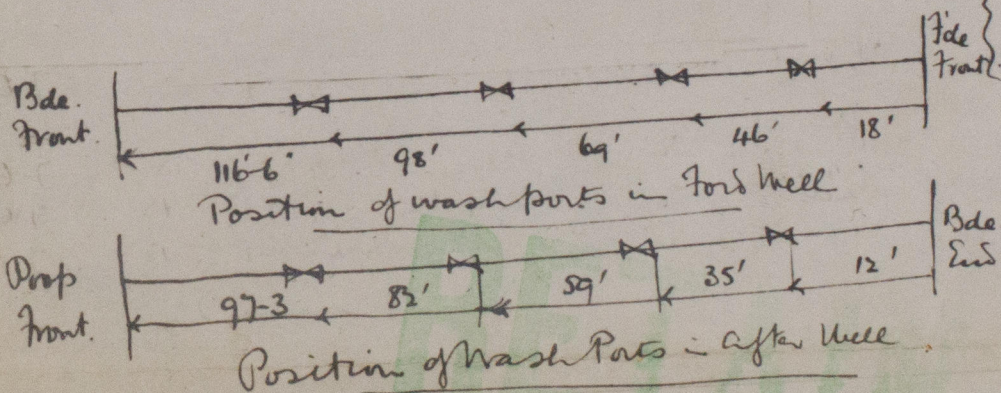 Bde. Front.
F'de Front
116'-6" 98' 69' 46' 18'
Position of wash ports in Ford Well
Poop Front.
Bde End
97-3 82' 59' 35' 12'
Position of Wash Ports in after Well